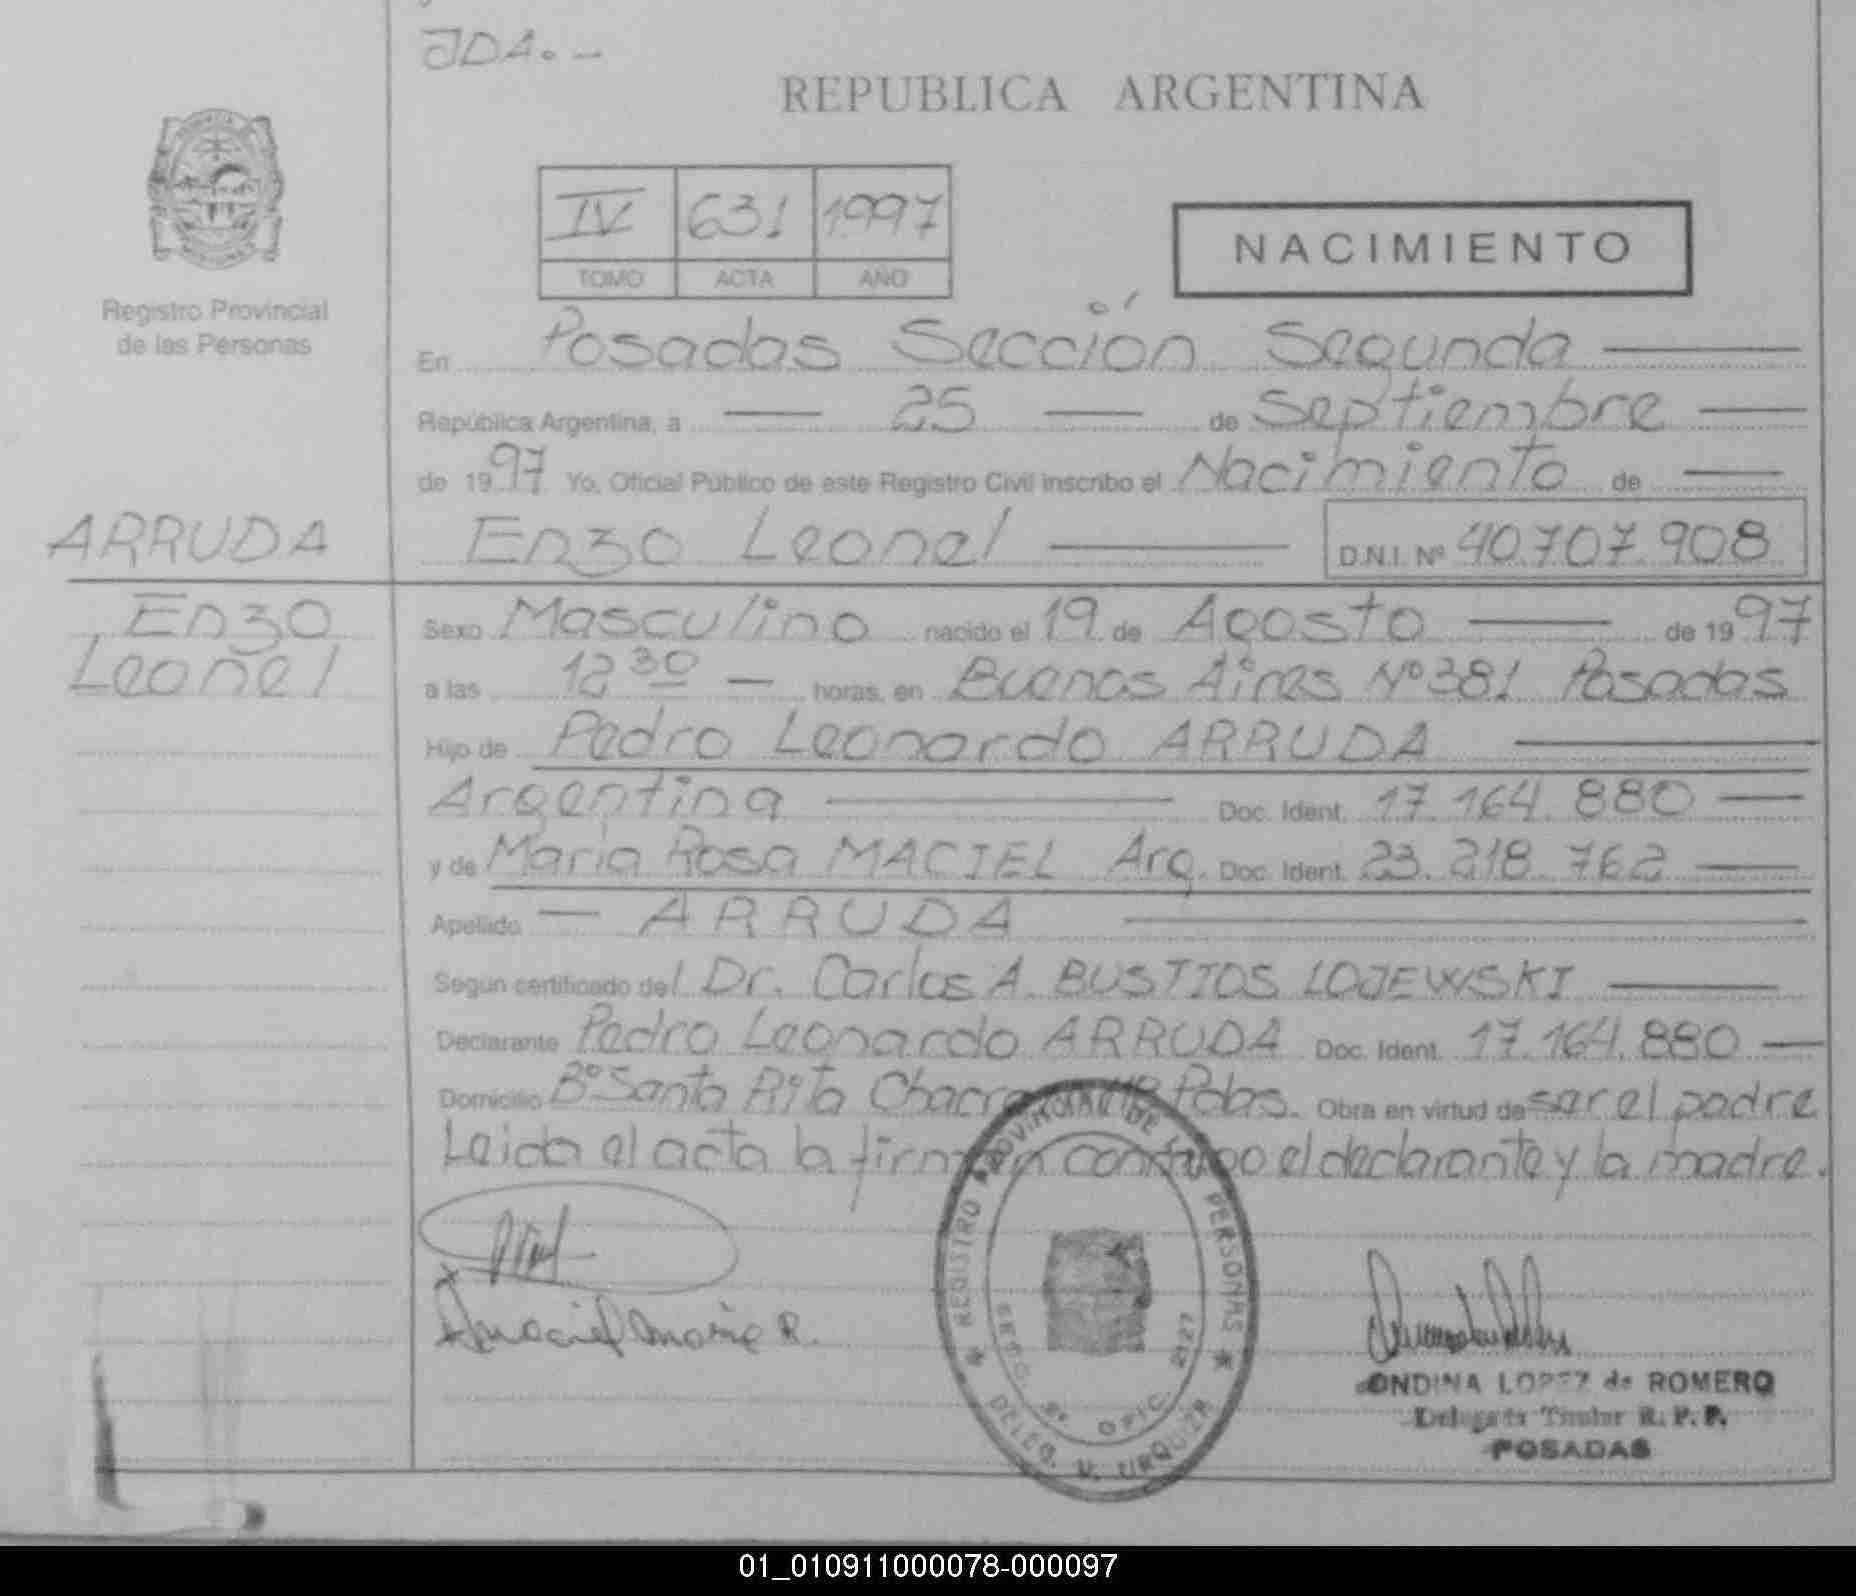 JDA. -
REPUBLICA ARGENTINA
IV 631 1997
TOMO ACTA AÑO
NACIMIENTO
Registro Provincial
de las Personas
En Posadas Sección Segunda
República Argentina, a 25 de Septiembre
de 1997 Yo, Oficial Público de este Registro Civil inscribo el Nacimiento de
ARRUDA Enzo Leonel D.N.I. Nº 40.707.908
Enzo
Leonel
Sexo Masculino nacido el 19 de Agosto de 1997
a las 12 30 - horas, en Buenos Aires Nº 381 Posadas
Hijo de Pedro Leonardo ARRUDA
Argentina Doc. Ident. 17.164.880
y de María Rosa MACIEL Arg. Doc. Ident. 23.218.762
Apellido - ARRUDA
Según certificado del Dr. Carlos A. BUSTIOS LOJEWSKI
Declarante Pedro Leonardo ARRUDA Doc. Ident. 17.164.880
Domicilio Bº Santa Rita Chacra Pdas. Obra en virtud de ser el padre
Leida el acta la firman conmigo el declarante y la madre.
Maciel Maria R.
REGISTRO PROVINCIAL DE LAS PERSONAS
SECC. 2ª OFIC. 2127
DELEG. V. URQUIZA
ONDINA LOPEZ de ROMERO
Delegada Titular R. P. P.
POSADAS
01_010911000078-000097